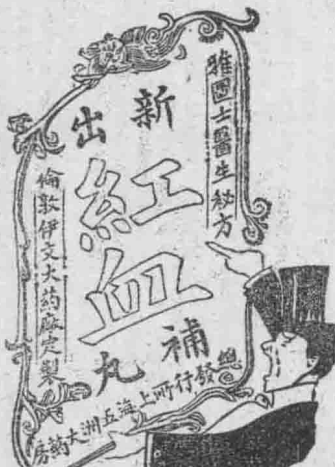 雅囯士醫生秘方
新出
紅血
補丸
倫敦伊文大药廠定製
總發行所上海五洲大葯房